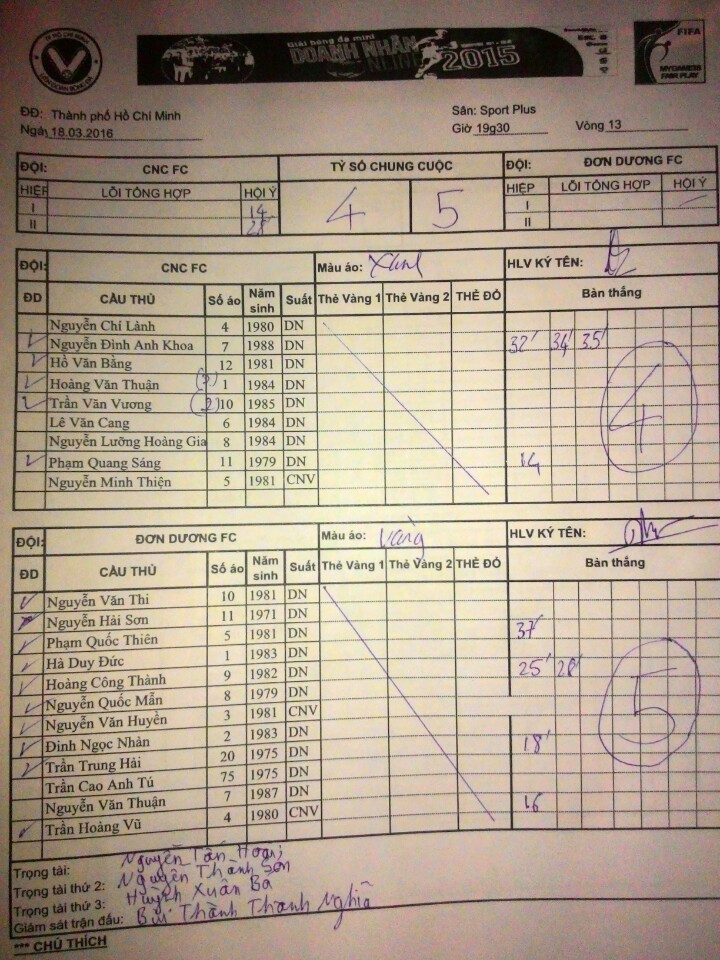 TP HỒ CHÍ MINH
Giải bóng đá mini
DOANH NHÂN
ONLINE
2015
FIFA
MY GAME IS
FAIR PLAY
ĐĐ: Thành phố Hồ Chí Minh Sân: Sport Plus
Ngày 18.03.2016 Giờ 19g30 Vòng 13
ĐỘI: CNC FC TỶ SỐ CHUNG CUỘC ĐỘI: ĐƠN DƯƠNG FC
HIỆP LỖI TỔNG HỢP HỘI Ý 4 5 HIỆP LỖI TỔNG HỢP HỘI Ý
I 14 I
II 28 II
ĐỘI: CNC FC Màu áo: Xanh HLV KÝ TÊN:
ĐD CẦU THỦ Số áo Năm sinh Suất Thẻ Vàng 1 Thẻ Vàng 2 THẺ ĐỎ Bàn thắng
Nguyễn Chí Lành 4 1980 DN
Nguyễn Đình Anh Khoa 7 1988 DN 32' 34' 35'
Hồ Văn Bằng 12 1981 DN
Hoàng Văn Thuận 1 1984 DN
Trần Văn Vương (2) 10 1985 DN
Lê Văn Cang 6 1984 DN
Nguyễn Lưỡng Hoàng Gia 8 1984 DN
Phạm Quang Sáng 11 1979 DN
Nguyễn Minh Thiện 5 1981 CNV
4
ĐỘI: ĐƠN DƯƠNG FC Màu áo: Vàng HLV KÝ TÊN:
ĐD CẦU THỦ Số áo Năm sinh Suất Thẻ Vàng 1 Thẻ Vàng 2 THẺ ĐỎ Bàn thắng
Nguyễn Văn Thi 10 1981 DN
Nguyễn Hải Sơn 11 1971 DN
Phạm Quốc Thiên 5 1981 DN 37'
Hà Duy Đức 1 1983 DN
Hoàng Công Thành 9 1982 DN 25' 28'
Nguyễn Quốc Mẫn 8 1979 DN
Nguyễn Văn Huyền 3 1981 CNV
Đinh Ngọc Nhàn 2 1983 DN 18'
Trần Trung Hải 20 1975 DN
Trần Cao Anh Tú 75 1975 DN
Nguyễn Văn Thuận 7 1987 DN 16
Trần Hoàng Vũ 4 1980 CNV
5
Trọng tài: Nguyễn Tấn
Trọng tài thứ 2: Nguyễn Thành Sơn
Trọng tài thứ 3: Huỳnh Xuân Ba
Giám sát trận đấu: Bùi Thành Thanh Nghĩa
*** CHÚ THÍCH